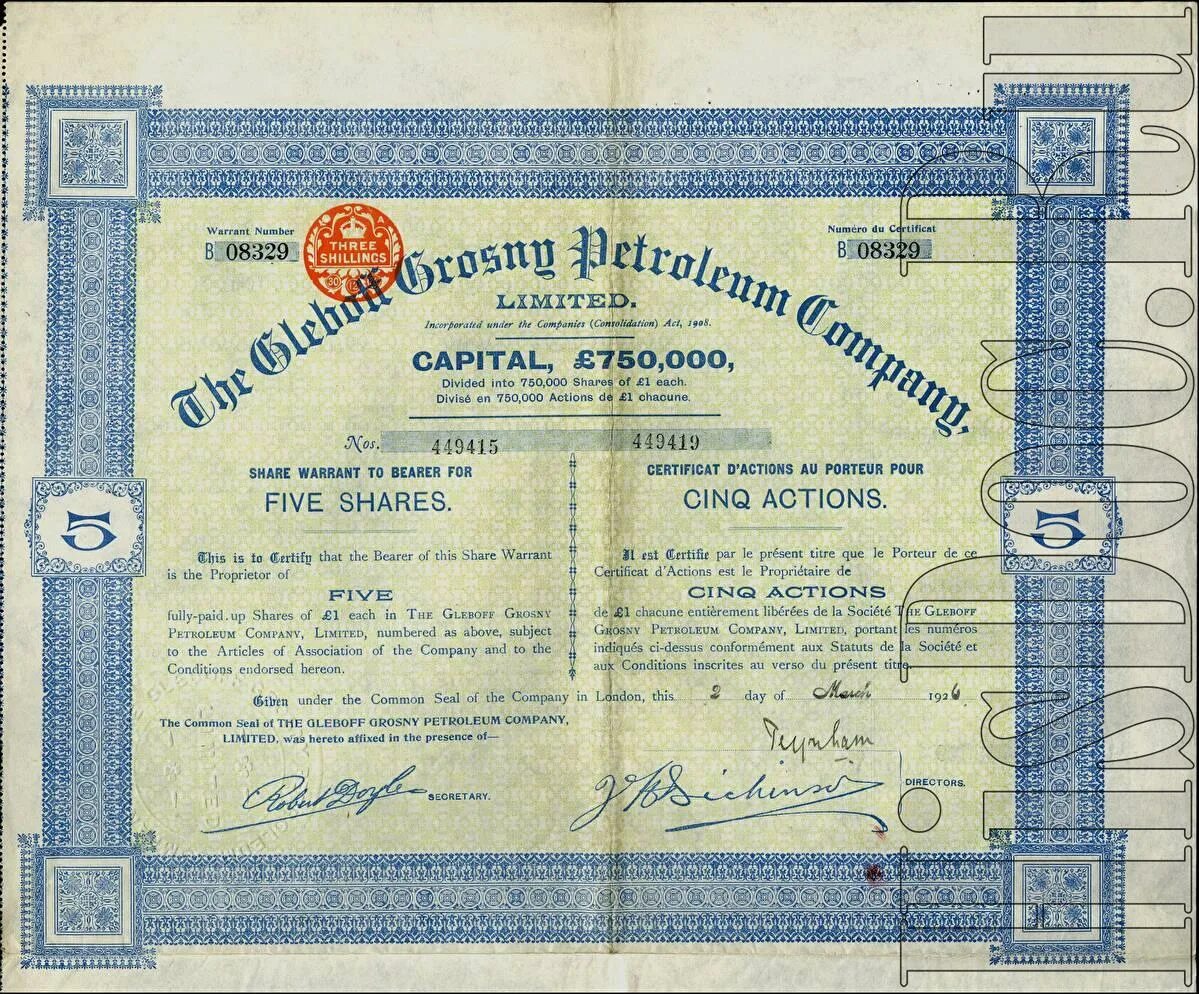 Warrant Number
B 08329
Numéro du Certificat
B 08329
THREE
SHILLINGS
The Gleboff Grosny Petroleum Company,
LIMITED.
Incorporated under the Companies (Consolidation) Act, 1908.
CAPITAL, £750,000,
Divided into 750,000 Shares of £1 each.
Divisé en 750,000 Actions de £1 chacune.
Nos. 449415 449419
SHARE WARRANT TO BEARER FOR
FIVE SHARES.
This is to Certify that the Bearer of this Share Warrant
is the Proprietor of
FIVE
fully-paid up Shares of £1 each in THE GLEBOFF GROSNY
PETROLEUM COMPANY, LIMITED, numbered as above, subject
to the Articles of Association of the Company and to the
Conditions endorsed hereon.
CERTIFICAT D'ACTIONS AU PORTEUR POUR
CINQ ACTIONS.
Il est Certifie par le présent titre que le Porteur de ce
Certificat d'Actions est le Propriétaire de
CINQ ACTIONS
de £1 chacune entièrement libérées de la Société THE GLEBOFF
GROSNY PETROLEUM COMPANY, LIMITED, portant les numéros
indiqués ci-dessus conformément aux Statuts de la Société et
aux Conditions inscrites au verso du présent titre.
5
5
Given under the Common Seal of the Company in London, this 2 day of March 1926
The Common Seal of THE GLEBOFF GROSNY PETROLEUM COMPANY,
LIMITED, was hereto affixed in the presence of—
Teynham
Robert Doyle SECRETARY.
DIRECTORS.